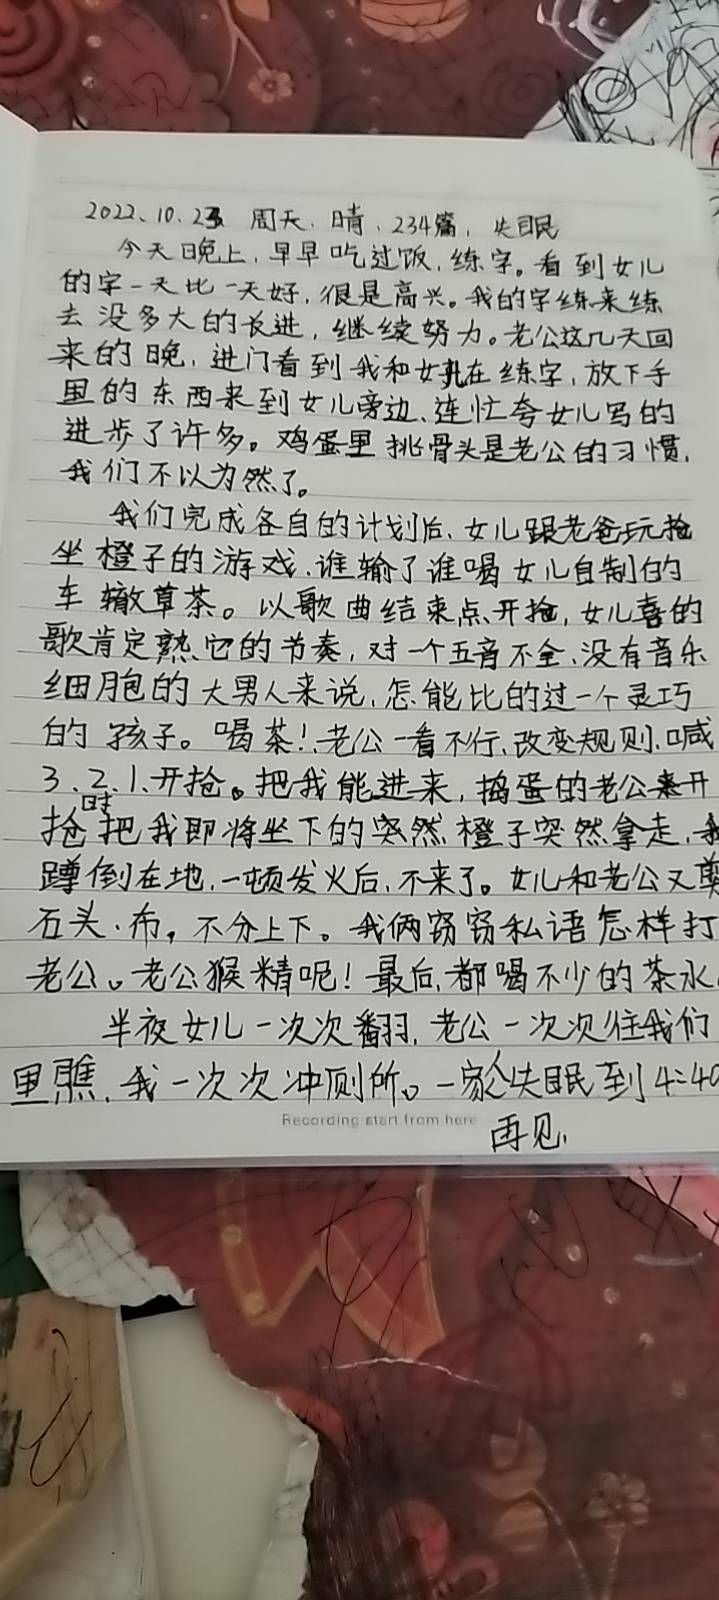 2022.10.23 周天.晴.234篇.失眠
今天晚上,早早吃过饭,练字。看到女儿
的字一天比一天好,很是高兴。我的字练来练
去没多大的长进,继续努力。老公这几天回
来的晚,进门看到我和女儿在练字,放下手
里的东西来到女儿旁边、连忙夸女儿写的
进步了许多。鸡蛋里挑骨头是老公的习惯,
我们不以为然了。
我们完成各自的计划后、女儿跟老爸玩抢
坐橙子的游戏.谁输了谁喝女儿自制的
车辙草茶。以歌曲结束点开抢,女儿喜的
歌肯定熟它的节奏,对一个五音不全、没有音乐
细胞的大男人来说,怎能比的过一个灵巧
的孩子。喝茶!老公一看不行,改变规则.喊
3.2.1.开抢。把我能进来,捣蛋的老公开
抢时把我即将坐下的突然橙子突然拿走.我
蹲倒在地,一顿发火后,不来了。女儿和老公又剪
石头.布,不分上下。我俩窃窃私语怎样打
老公。老公猴精呢!最后,都喝不少的茶水.
半夜女儿一次次翻,老公一次次往我们
里瞧,我一次次冲厕所。一家人失眠到4:40
Recording start from here
再见.